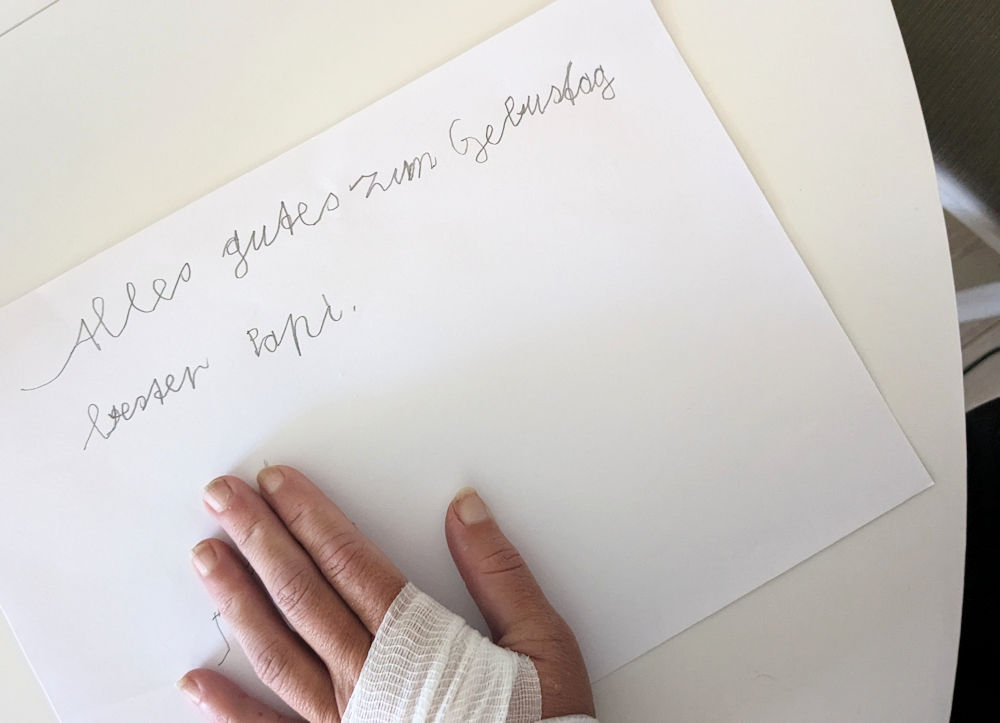 Alles gutes zum Gebustag
bester Papi.